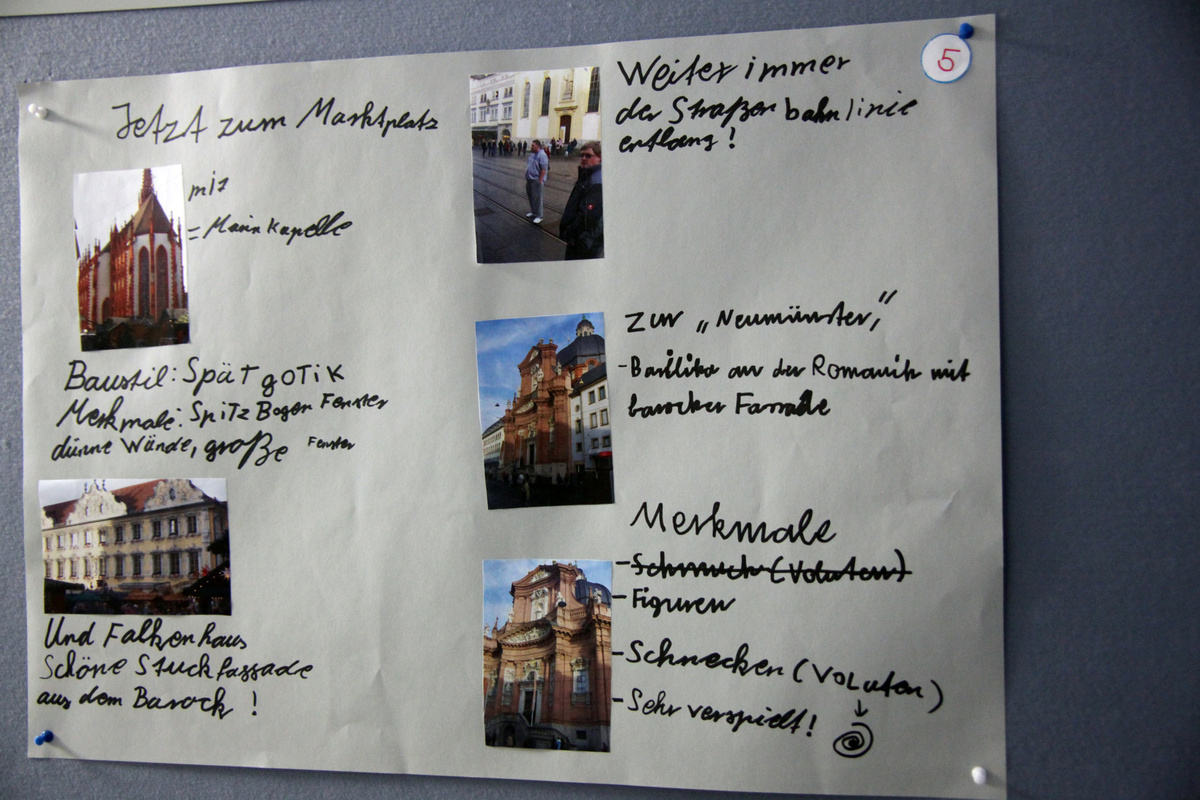 Jetzt zum Marktplatz
mit
= Marin Kapelle
Baustil: Spätgotik
Merkmale: Spitz Bogen Fenster
dünne Wände, große Fenster
Und Falkenhaus
Schöne Stuckfassade
aus dem Barock!
5
Weiter immer
der Straßenbahnlinie
entlang!
zur „Neumünster,"
- Basilika an der Romanik mit
barocker Fassade
Merkmale
- Schmuck (Voluten)
- Figuren
- Schnecken (Voluten)
- Sehr verspielt!